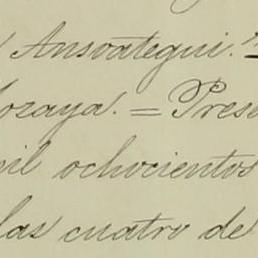 Ansoategui.
lozaya. = Prese
il ochocientos
las cuatro de